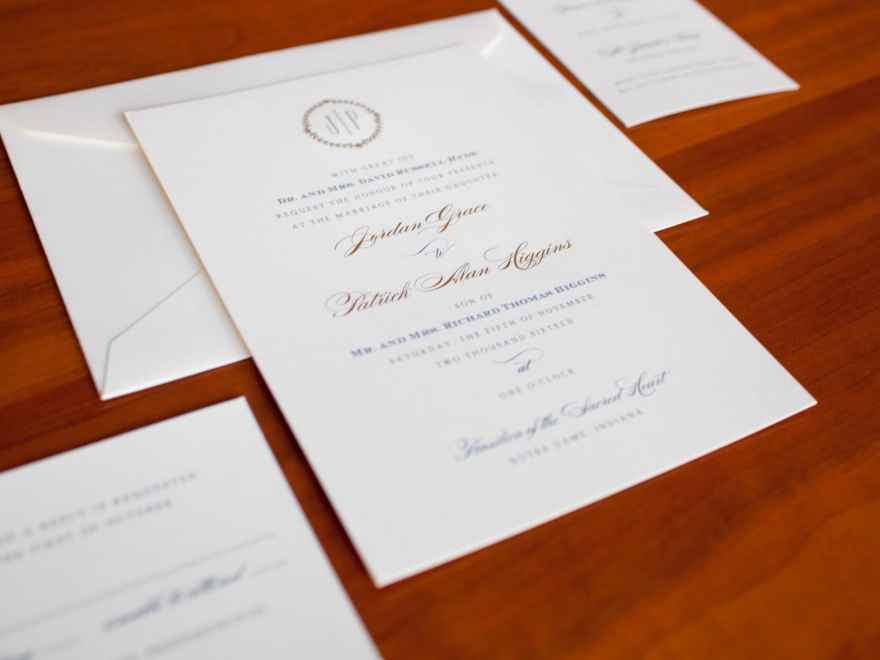 J P
WITH GREAT JOY
DR. AND MRS. DAVID RUSSELL HYDE
REQUEST THE HONOUR OF YOUR PRESENCE
AT THE MARRIAGE OF THEIR DAUGHTER
Jordan Grace
to
Patrick Alan Higgins
SON OF
MR. AND MRS. RICHARD THOMAS HIGGINS
SATURDAY, THE FIFTH OF NOVEMBER
TWO THOUSAND SIXTEEN
at
ONE O'CLOCK
Basilica of the Sacred Heart
NOTRE DAME, INDIANA
A REPLY IS REQUESTED
FIRST OF OCTOBER
unable to attend